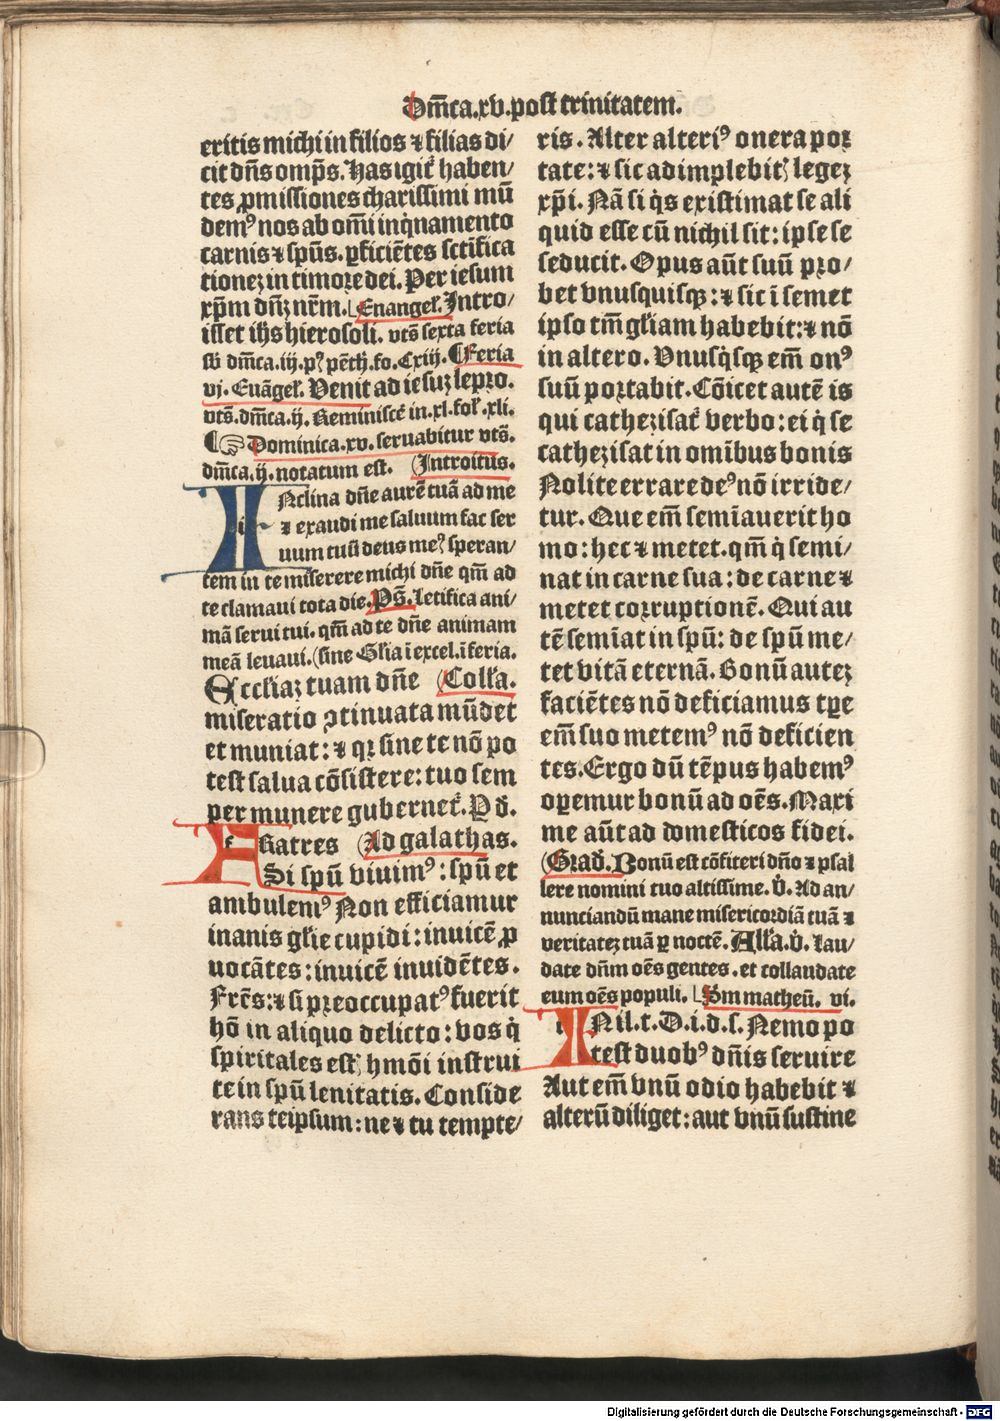 Dm̄ca.xv.post trinitatem.
eritis michi in filios ⁊ filias di/
cit dn̄s omp̄s. Has igit᷑ haben/
tes ꝓmissiones charissimi mū
demꝰ nos ab om̄i inq̇namento
carnis ⁊ spūs. ꝑficiētes sctīfica
tioneꝫ in timore dei. Per iesum
xp̄m dn̄ꝫ nr̄m. Euangeł. Intro/
isset ih̄s hierosoli. vts̄ sexta feria
sb̄ dm̄ca.iij.pꝰ pēth̄.fo.Cxiij. ¶Feria
vj. Euāgeł. Venit ad iesuꝫ lepro.
vts̄.dm̄ca.ij. Reminiscē in.xl.foł.xli.
¶☞Dominica.xv. seruabitur vts̄.
dm̄ca.ij.notatum est. (Introitus.
INclina dn̄e aurē tuā ad me
⁊ exaudi me saluum fac ser
uum tuū deus meꝰ speran/
tem in te miserere michi dn̄e qm̄ ad
te clamaui tota die. Ps̄. Letifica ani/
mā serui tui. qm̄ ad te dn̄e animam
meā leuaui. (sine Gl̄ia ī excel. ī feria.
Eccl̄iaꝫ tuam dn̄e (Coll̄a.
miseratio ꝯtinuata mūdet
et muniat: ⁊ qꝛ sine te nō po
test salua cōsistere: tuo sem
per munere gubernet᷑. Ꝑ d̄.
FRatres (Ad galathas.
Si spū viuimꝰ: spū et
ambulemꝰ Non efficiamur
inanis gl̄ie cupidi: inuicē ꝓ
uocātes: inuicē inuidētes.
Fr̄es: ⁊ si preoccupatꝰ fuerit
hō in aliquo delicto: vos q̇
spiritales estꝭ hm̄oi instrui
te in spū lenitatis. Conside
rans teipsum: ne ⁊ tu tempte/
ris. Alter alteriꝰ onera por
tate: ⁊ sic adimplebitꝭ legeꝫ
xp̄i. Nā si q̇s existimat se ali
quid esse cū nichil sit: ipse se
seducit. Opus aūt suū pro/
bet vnusquisqꝫ: ⁊ sic ī semet
ipso tm̄ gl̄iam habebit: ⁊ nō
in altero. Vnusq̇sqꝫ em̄ onꝰ
suū portabit. Cōicet autē is
qui cathezisat᷑ verbo: ei q̇ se
cathezisat in omībus bonis
Nolite errare deꝰ nō irride/
tur. Que em̄ semīauerit ho
mo: hec ⁊ metet. qm̄ q̇ semi/
nat in carne sua: de carne ⁊
metet corruptionē. Qui au
tē semīat in spū: de spū me/
tet vitā eternā. Bonū auteꝫ
faciētes nō deficiamus tꝑe
em̄ suo metemꝰ nō deficien
tes. Ergo dū tēpus habemꝰ
oꝑemur bonū ad oēs. Maxi
me aūt ad domesticos fidei.
(Grad̄. Bonū est cōfiteri dn̄o ⁊ psal
lere nomini tuo altissime. v̄. Ad an/
nunciandū mane misericordiā tuā ⁊
veritateꝫ tuā ꝑ noctē. All̄a. v̄. Lau/
date dn̄m oēs gentes. et collaudate
eum oēs populi. Sm matheū. vi.
IN il.t.D.i.d.s. Nemo po
test duobꝰ dn̄is seruire
Aut em̄ vnū odio habebit ⁊
alterū diliget: aut vnū sustine
Digitalisierung gefördert durch die Deutsche Forschungsgemeinschaft - DFG